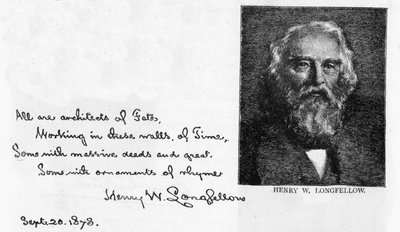 All are architects of Fate,
Working in these walls of Time,
Some with massive deeds and great.
Some with ornaments of rhyme
Henry W. Longfellow
Sept. 20. 1878.
HENRY W. LONGFELLOW.